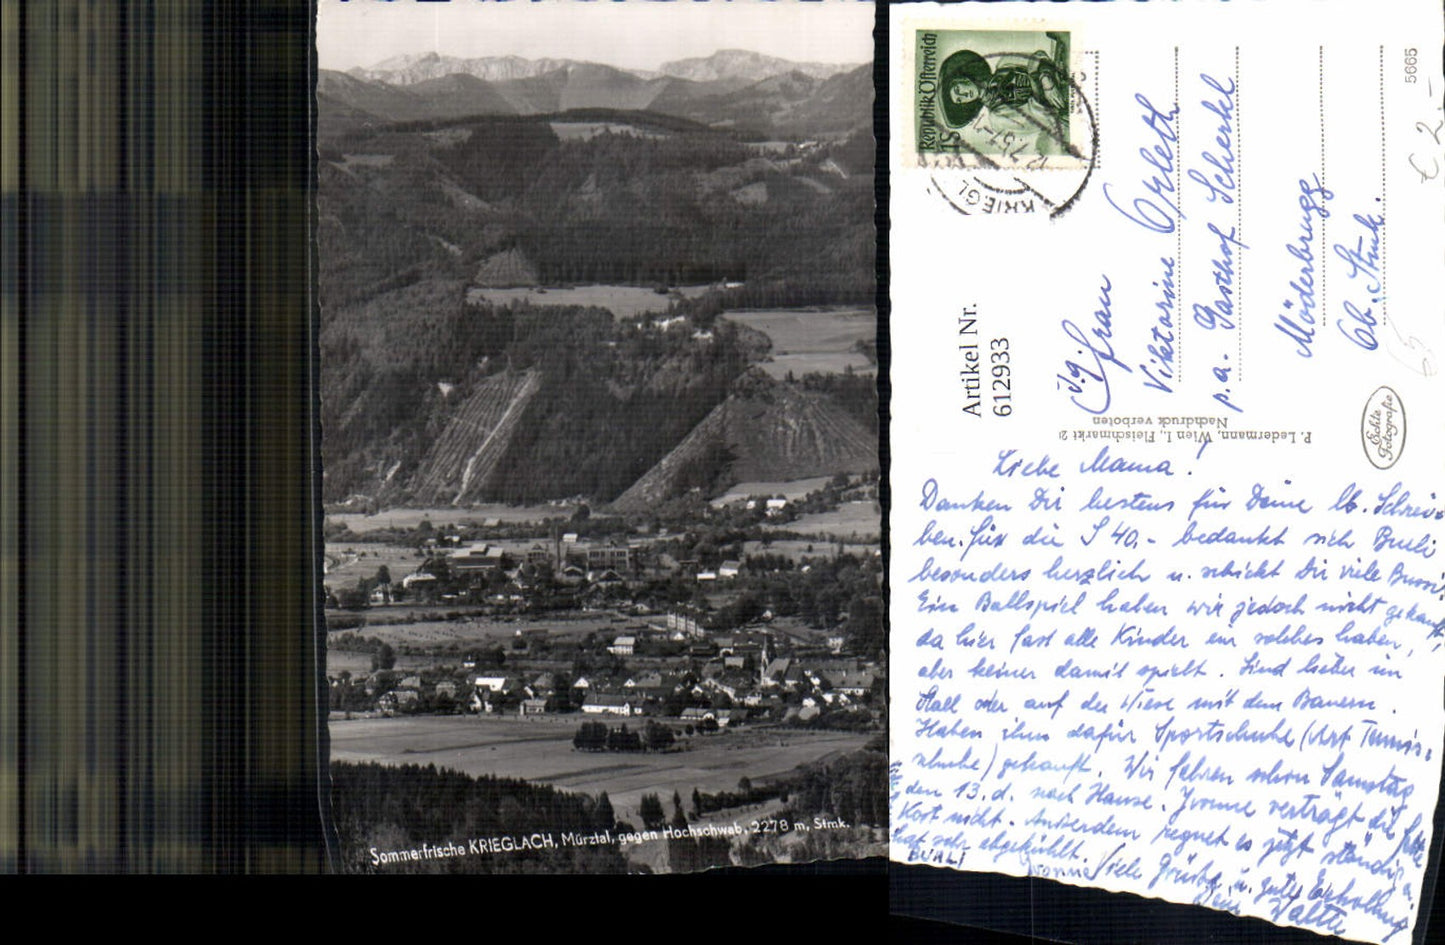 Sommerfrische KRIEGLACH, Mürztal, gegen Hochschwab, 2278 m, Stmk.
Republik Österreich
1 S
KRIEGL
12.7.57
5665
€ 2,-
Artikel Nr.
612933
Frau
Viktorine
p.a. Gasthof Scherkl
Möderbrugg
Ob. Stmk.
P. Ledermann, Wien I., Fleischmarkt 2
Nachdruck verboten
Echte
Fotografie
Liebe Mama!
Danken Dir bestens für Deine lb. Schrei-
ben. Für die S 40,- bedankt sich Buali
besonders herzlich u. schickt Dir viele Bussi.
Ein Ballspiel haben wir jedoch nicht gekauft,
da hier fast alle Kinder ein solches haben,
aber keiner damit spielt. Sind lieber im
Stall oder auf der Wiese mit dem Bauern.
Haben ihm dafür Sportschuhe (Art Tennis-
schuhe) gekauft. Wir fahren schon Samstag
den 13. d. nach Hause. Yvonne verträgt die fette
Kost nicht. Außerdem regnet es jetzt ständig u.
hat sehr abgekühlt.
BUALI
Yvonne Viele Grüße u. gute Erholung
Dein Walter